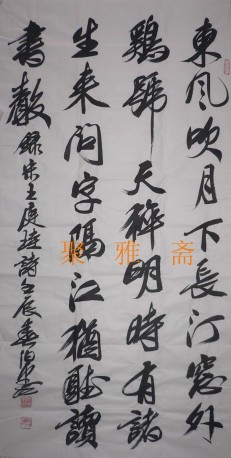 東風吹月下長汀窓外
鷄號天粹明時有諸
生来問字隔江猶聽讀
書聲 録宋王庭珪詩壬辰春
聚雅斋